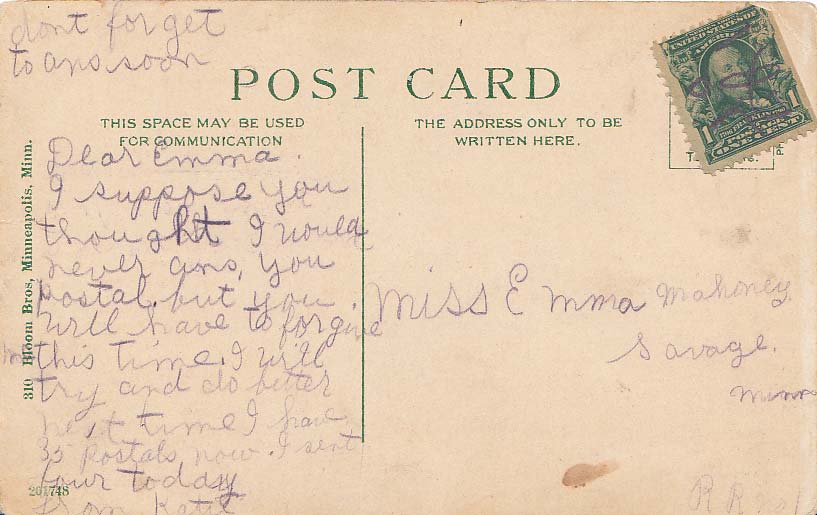 dont forget
to ans soon
POST CARD
THIS SPACE MAY BE USED
FOR COMMUNICATION
THE ADDRESS ONLY TO BE
WRITTEN HERE.
310 Bloom Bros, Minneapolis, Minn.
Dear Emma.
I suppose you
thought I would
never ans, you
postal, but you
will have to forgive
me this time. I will
try and do better
next time I have
35 postals now. I sent
four today
from Katie
201748
Miss Emma Mahoney
Savage.
Minn
UNITED STATES OF
AMERICA
1 1
FRANKLIN
POSTAGE
ONE CENT